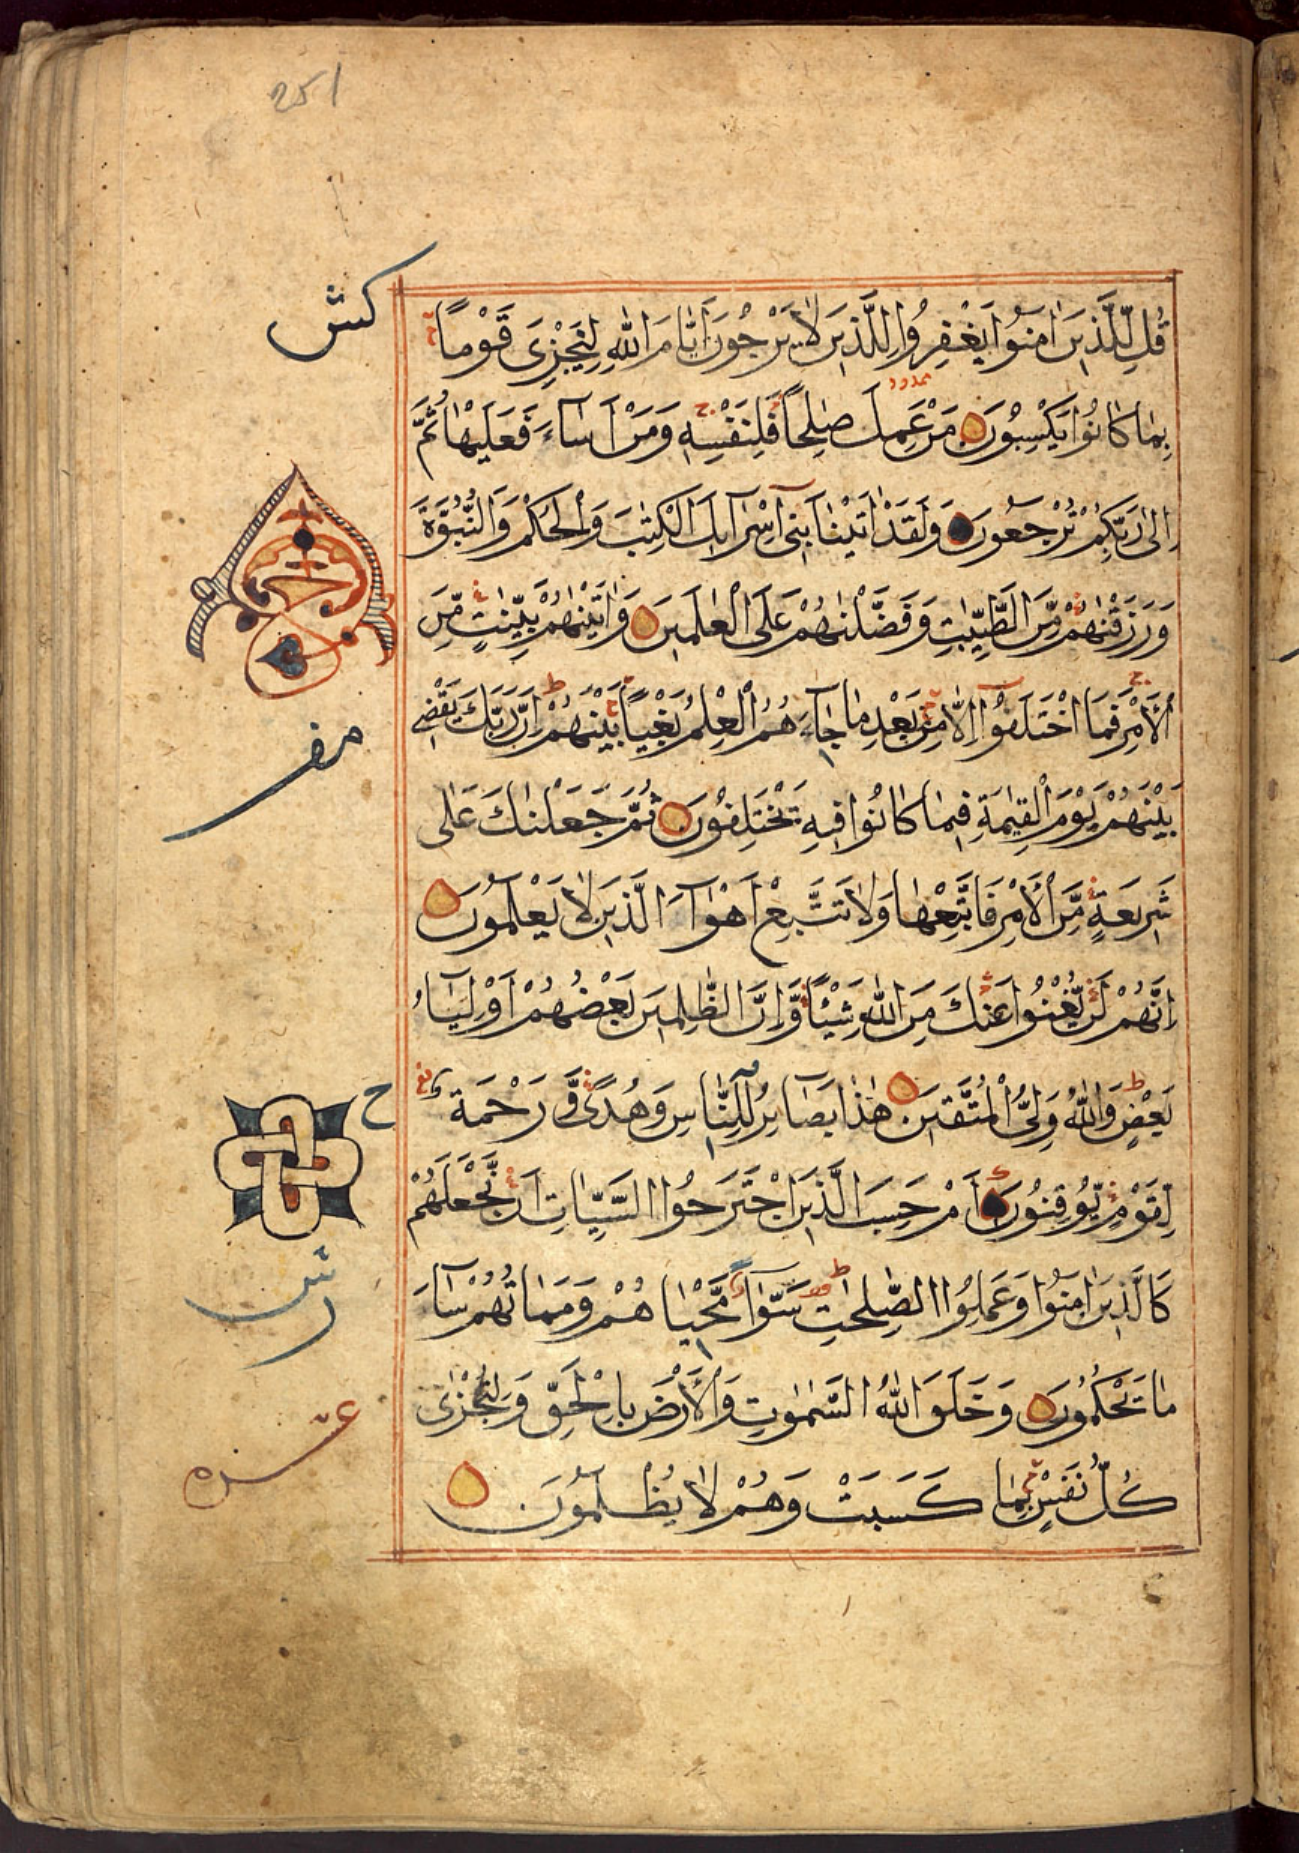 251
كش
قُلْ لِّلَّذِيْنَ اٰمَنُوْا يَغْفِرُوْا لِلَّذِيْنَ لَا يَرْجُوْنَ اَيَّامَ اللّٰهِ لِيَجْزِىَ قَوْمًا
بِمَا كَانُوْا يَكْسِبُوْنَ مَنْ عَمِلَ صٰلِحًا فَلِنَفْسِهٖ وَمَنْ اَسَآءَ فَعَلَيْهَا ثُمَّ
اِلٰى رَبِّكُمْ تُرْجَعُوْنَ وَلَقَدْ اٰتَيْنَا بَنِىْٓ اِسْرَآئِلَ الْكِتٰبَ وَالْحُكْمَ وَالنُّبُوَّةَ
وَرَزَقْنٰهُمْ مِّنَ الطَّيِّبٰتِ وَفَضَّلْنٰهُمْ عَلَى الْعٰلَمِيْنَ وَاٰتَيْنٰهُمْ بَيِّنٰتٍ مِّنَ
الْاَمْرِ فَمَا اخْتَلَفُوْٓا اِلَّا مِنْ بَعْدِ مَا جَآءَ هُمُ الْعِلْمُ بَغْيًا بَيْنَهُمْ اِنَّ رَبَّكَ يَقْضِىْ
بَيْنَهُمْ يَوْمَ الْقِيٰمَةِ فِيْمَا كَانُوْا فِيْهِ يَخْتَلِفُوْنَ ثُمَّ جَعَلْنٰكَ عَلٰى
شَرِيْعَةٍ مِّنَ الْاَمْرِ فَاتَّبِعْهَا وَلَا تَتَّبِعْ اَهْوَآءَ الَّذِيْنَ لَا يَعْلَمُوْنَ
اِنَّهُمْ لَنْ يُّغْنُوْا عَنْكَ مِنَ اللّٰهِ شَيْئًا وَّاِنَّ الظّٰلِمِيْنَ بَعْضُهُمْ اَوْلِيَآءُ
بَعْضٍ وَاللّٰهُ وَلِىُّ الْمُتَّقِيْنَ هٰذَا بَصَآئِرُ لِلنَّاسِ وَهُدًى وَّرَحْمَةٌ
ح
لِّقَوْمٍ يُّوْقِنُوْنَ اَمْ حَسِبَ الَّذِيْنَ اجْتَرَحُوا السَّيِّاٰتِ اَنْ نَّجْعَلَهُمْ
كَالَّذِيْنَ اٰمَنُوْا وَعَمِلُوا الصّٰلِحٰتِ سَوَآءً مَّحْيَاهُمْ وَمَمَاتُهُمْ سَآءَ
مَا يَحْكُمُوْنَ وَخَلَقَ اللّٰهُ السَّمٰوٰتِ وَالْاَرْضَ بِالْحَقِّ وَلِتُجْزٰى
كُلُّ نَفْسٍ بِمَا كَسَبَتْ وَهُمْ لَا يُظْلَمُوْنَ